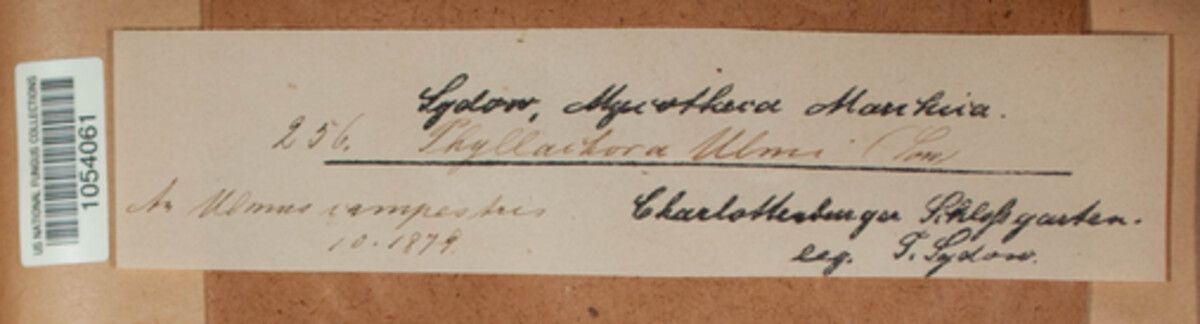 US NATIONAL FUNGUS COLLECTIONS
1054061
Sydow, Mycotheca Marchica.
256. Phyllachora Ulmi
An Ulmus campestris
10. 1879.
Charlottenburger Schloßgarten.
leg. P. Sydow.